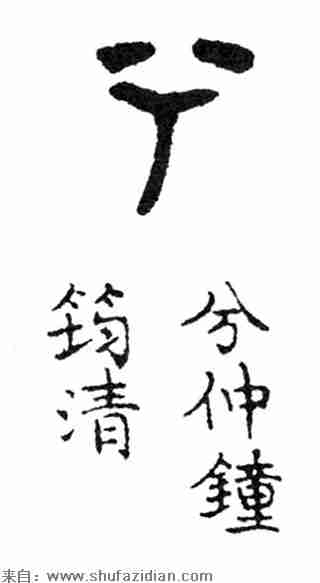 兮
兮仲鐘
筠清
来自：www.shufazidian.com